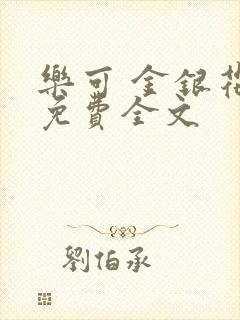 樂可 金銀花
免費全文
劉伯承